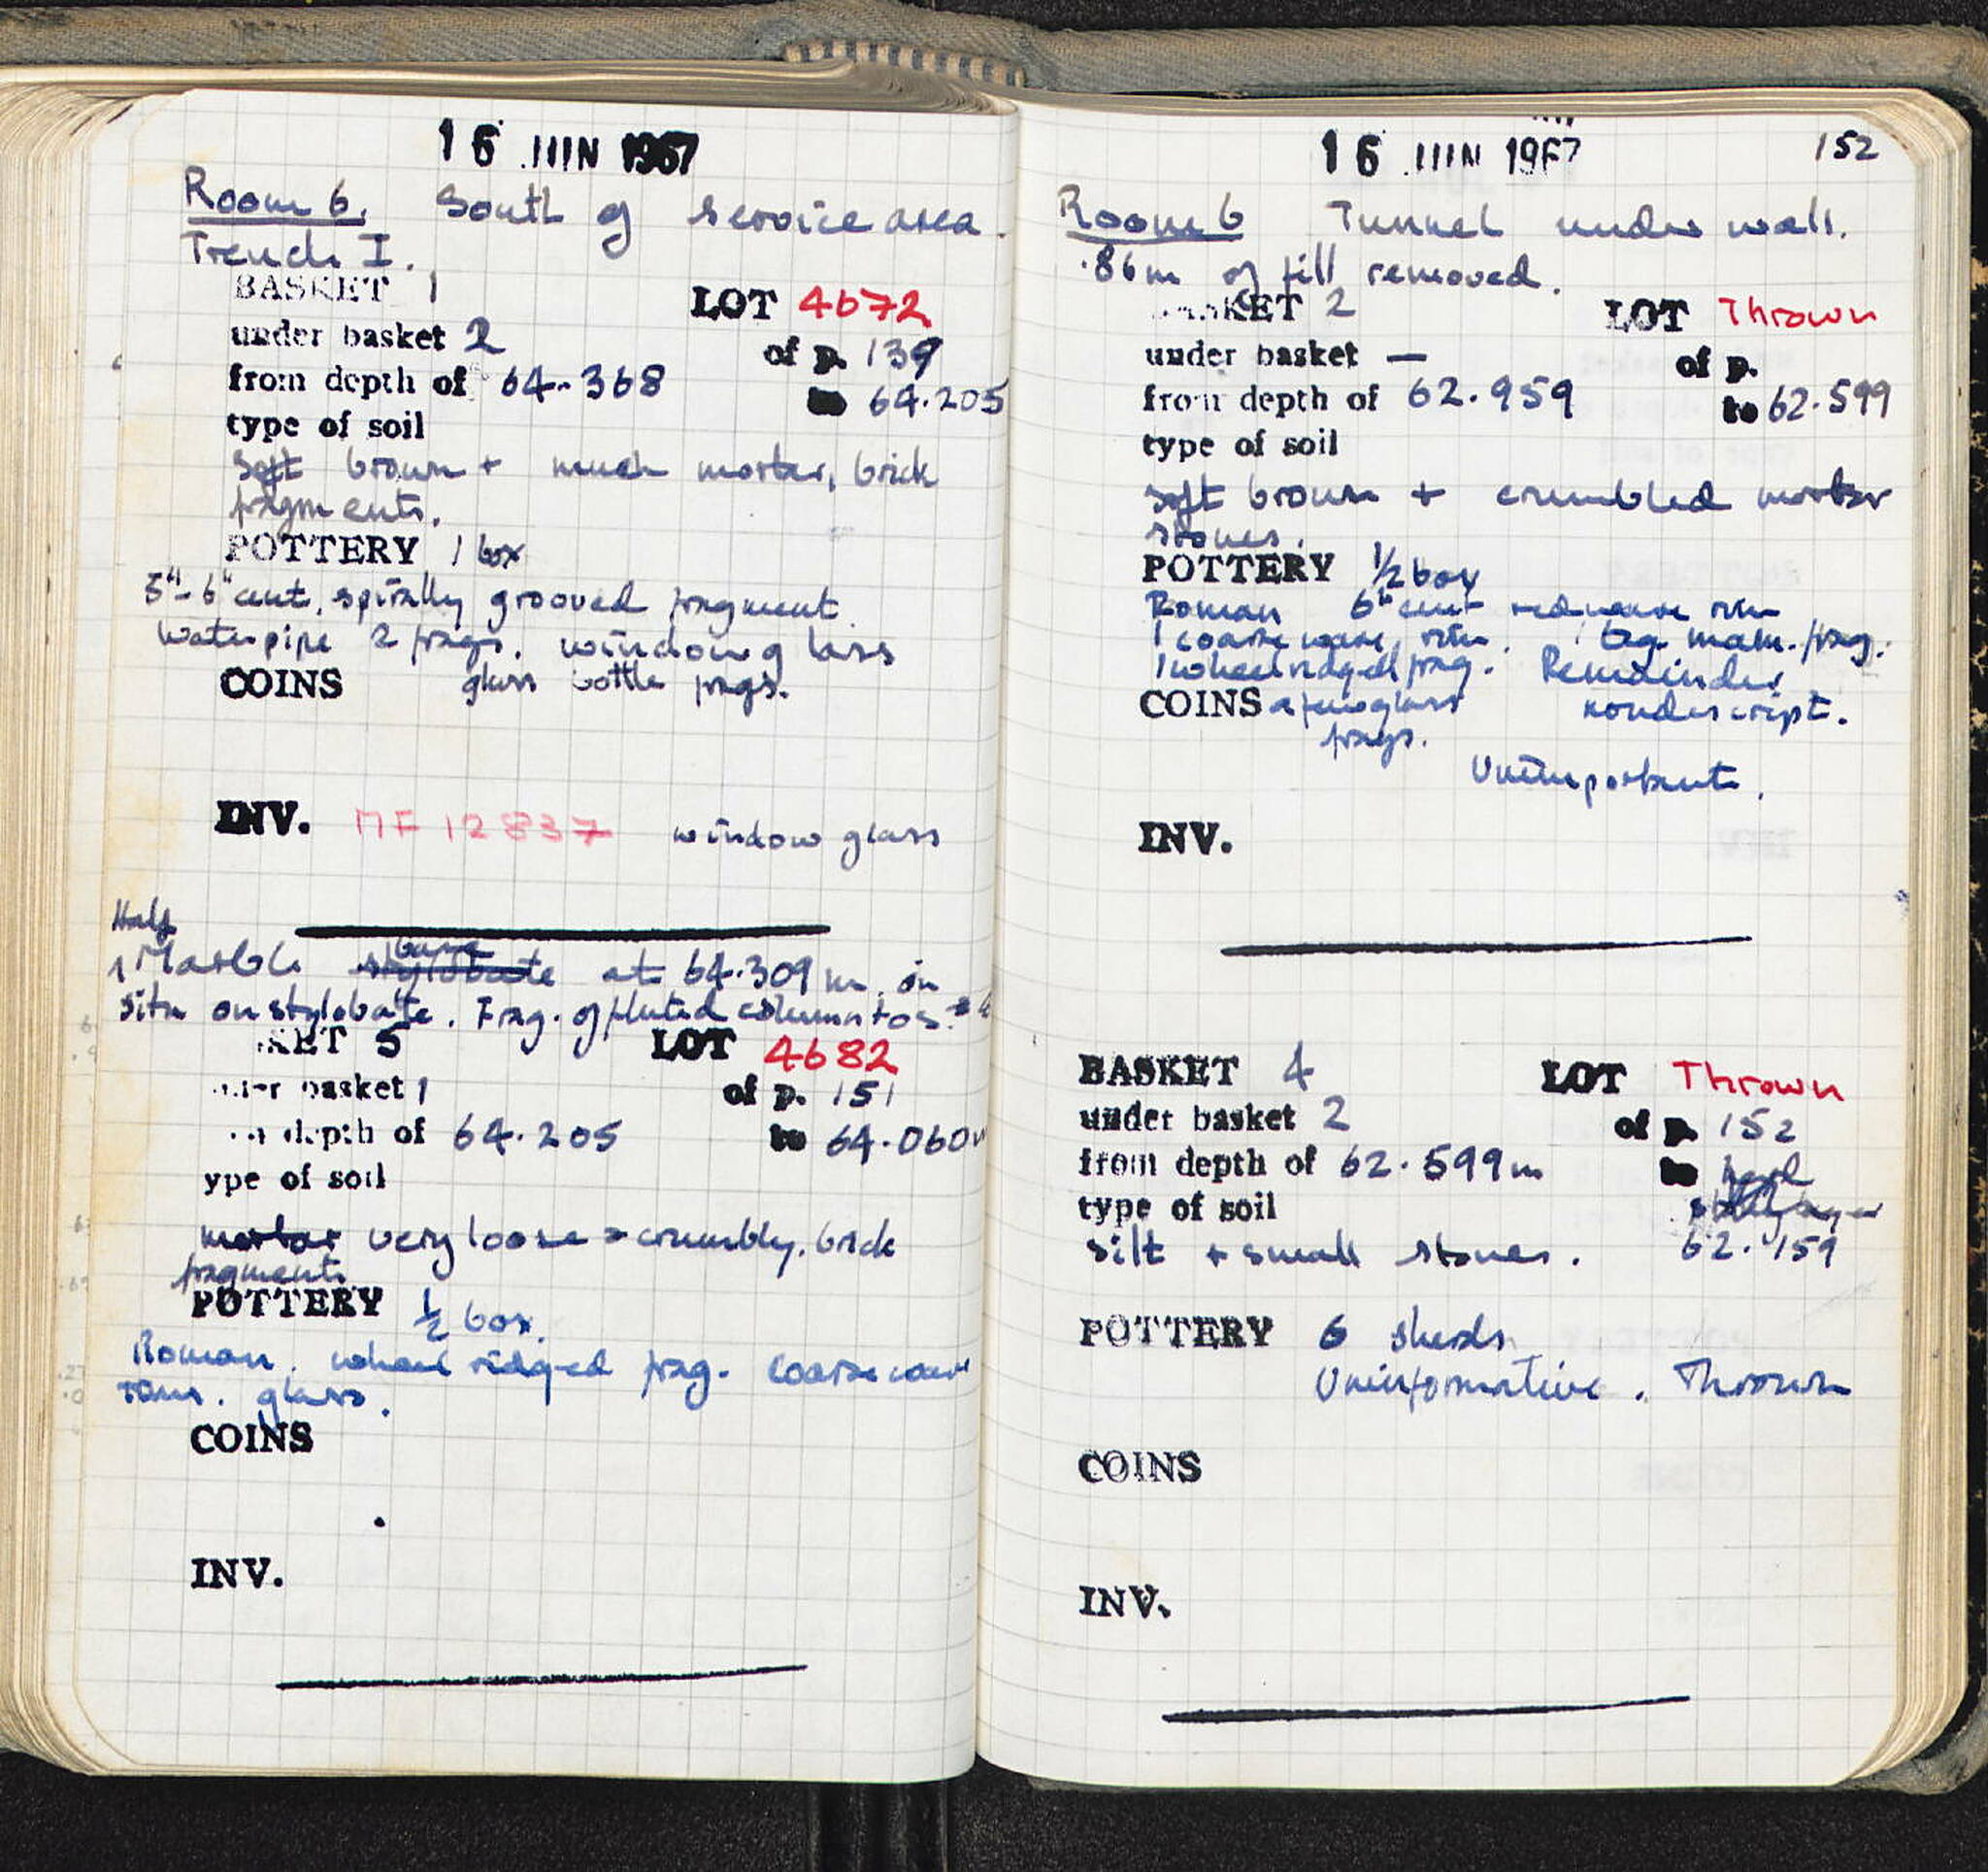 16 JUN 1967
Room 6. South of service area.
Trench I.
BASKET 1 LOT 4672
under basket 2 of p. 139
from depth of 64.368 to 64.205
type of soil
soft brown + much mortar, brick
fragments.
POTTERY 1 box
5th-6th cent. spirally grooved fragment.
Waterpipe 2 frags. window glass
COINS glass bottle frags.
INV. MF 12837 window glass
Half
1 Marble stylobate base at 64.309 m. in
situ on stylobate. Frag. of fluted column
KET 5 LOT 4682
basket 1 of p. 151
depth of 64.205 to 64.060
ype of soil
mortar very loose crumbly, brick
fragments
POTTERY 1/2 box.
Roman. wheel ridged frag. coarse ware
rims. glass.
COINS
INV.
16 JUN 1967 152
Room 6 Tunnel under wall.
.86m of fill removed.
KET 2 LOT Thrown
under basket — of p.
from depth of 62.959 to 62.599
type of soil
soft brown + crumbled mortar
stones.
POTTERY 1/2 box
Roman 6th cent redware rim
1 coarse ware rim. 1 frag.
1 wheelridged frag. Remainder
COINS a few glass nondescript.
frags.
Unimportant.
INV.
BASKET 4 LOT Thrown
under basket 2 of p. 152
from depth of 62.599m to
type of soil
silt + small stones. 62.159
POTTERY 6 sherds
Uninformative. Thrown
COINS
INV.